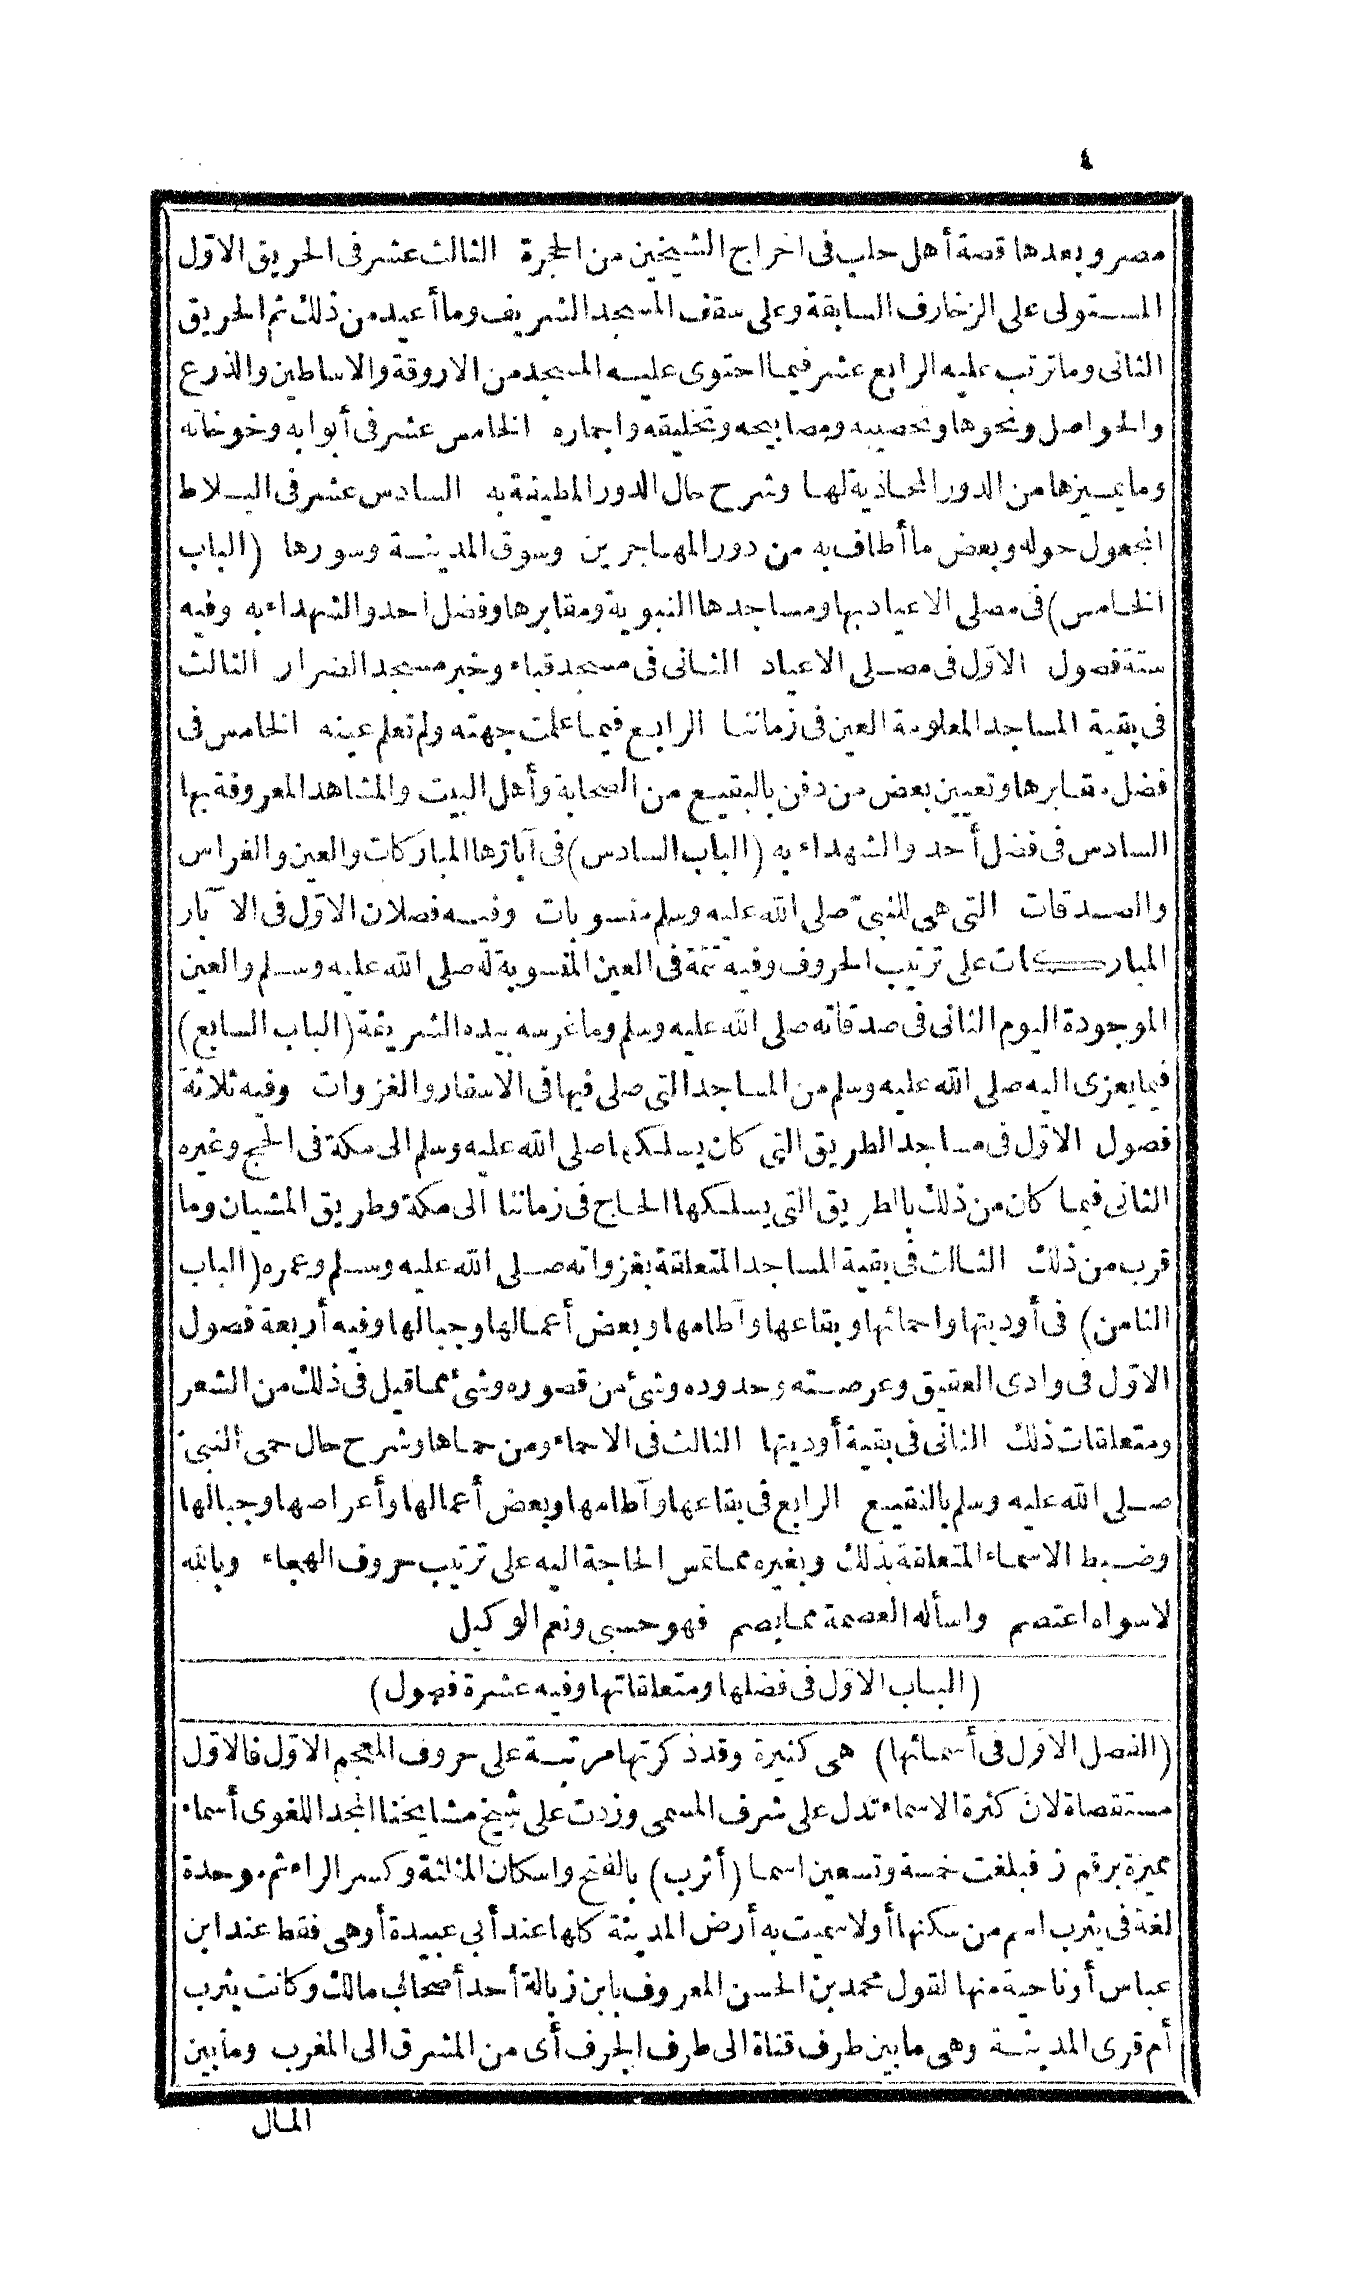 ٤
مصر وبعدها قصة أهل حلب فى اخراج الشيخين من الحجرة الثالث عشر فى الحريق الاوّل
المستولى على الزخارف السابقة وعلى سقف المسجد الشريف وما أعيد من ذلك ثم الحريق
الثانى وما ترتب عليه الرابع عشر فيما احتوى عليه المسجد من الاروقة والاساطين والذرع
والحواصل ونحوها وتحصيبه ومصابيحه وتخليقه واجماره الخامس عشر فى أبوابه وخوخاته
وما يميزها من الدور المحاذية لها وشرح حال الدور المطيفة به السادس عشر فى البلاط
المجعول حوله وبعض ما أطاف به من دور المهاجرين وسوق المدينة وسورها (الباب
الخامس) فى مصلى الاعياد بها ومساجدها النبوية ومقابرها وفضل احد والشهداء به وفيه
ستة فصول الاوّل فى مصلى الاعياد الثانى فى مسجد قباء وخبر مسجد الضرار الثالث
فى بقية المساجد المعلومة العين فى زماننا الرابع فيما علمت جهته ولم تعلم عينه الخامس فى
فضل مقابرها وتعيين بعض من دفن بالبقيع من الصحابة وأهل البيت والمشاهد المعروفة بها
السادس فى فضل أحد والشهداء به (الباب السادس) فى آبارها المباركات والعين والغراس
والصدقات التى هى للنبىّ صلى الله عليه وسلم منسوبات وفيه فصلان الاوّل فى الآبار
المباركات على ترتيب الحروف وفيه تتمة فى العين المنسوبة له صلى الله عليه وسلم والعين
الموجودة اليوم الثانى فى صدقاته صلى الله عليه وسلم وما غرسه بيده الشريفة (الباب السابع)
فيما يعزى اليه صلى الله عليه وسلم من المساجد التى صلى فيها فى الاسفار والغزوات وفيه ثلاثة
فصول الاوّل فى مساجد الطريق التى كان يسلكها صلى الله عليه وسلم الى مكة فى الحج وغيره
الثانى فيما كان من ذلك بالطريق التى يسلكها الحاج فى زماننا الى مكة وطريق المشيان وما
قرب من ذلك الثالث فى بقية المساجد المتعلقة بغزواته صلى الله عليه وسلم وعمره (الباب
الثامن) فى أوديتها واحمائها وبقاعها وآطامها وبعض أعمالها وجبالها وفيه أربعة فصول
الاوّل فى وادى العقيق وعرصته وحدوده وشئ من قصوره وشئ مما قيل فى ذلك من الشعر
ومتعلقات ذلك الثانى فى بقية أوديتها الثالث فى الاحماء ومن حماها وشرح حال حمى النبىّ
صلى الله عليه وسلم بالنقيع الرابع فى بقاعها وآطامها وبعض أعمالها وأعراضها وجبالها
وضبط الاسماء المتعلقة بذلك وبغيره مما تمس الحاجة اليه على ترتيب حروف الهجاء وبالله
لا سواه اعتصم واسأله العصمة مما يصم فهو حسبى ونعم الوكيل
(الباب الاوّل فى فضلها ومتعلقاتها وفيه عشرة فصول)
(الفصل الاوّل فى أسمائها) هى كثيرة وقد ذكرتها مرتبة على حروف المعجم الاوّل فالاوّل
مستقصاة لان كثرة الاسماء تدل على شرف المسمى وزدت على شيخ مشايخنا المجد اللغوى أسماء
مميزة برقم ز فبلغت خمسة وتسعين اسما (أثرب) بالفتح واسكان المثلثة وكسر الراء ثم موحدة
لغة فى يثرب اسم من سكنها أولا سميت به أرض المدينة كلها عند أبى عبيدة أو هى فقط عند ابن
عباس أو ناحية منها لقول محمد بن الحسن المعروف بابن زبالة أحد أصحاب مالك وكانت يثرب
أم قرى المدينة وهى ما بين طرف قناة الى طرف الجرف أى من المشرق الى المغرب وما بين
المال